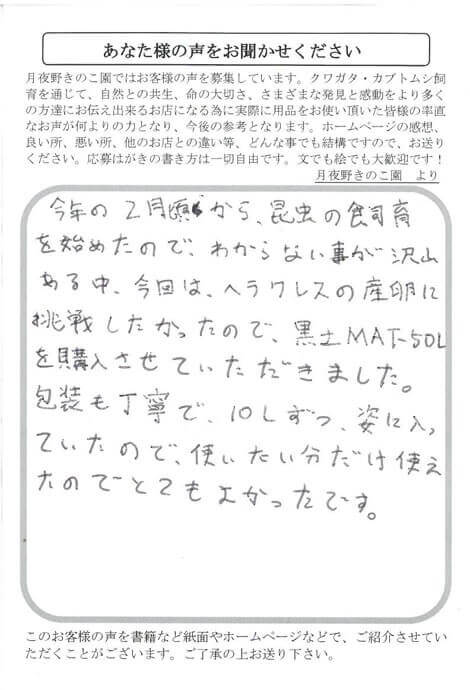 あなた様の声をお聞かせください
月夜野きのこ園ではお客様の声を募集しています。クワガタ・カブトムシ飼
育を通じて、自然との共生、命の大切さ、さまざまな発見と感動をより多く
の方達にお伝え出来るお店になる為に実際に用品をお使い頂いた皆様の率直
なお声が何よりの力となり、今後の参考となります。ホームページの感想、
良い所、悪い所、他のお店との違い等、どんな事でも結構ですので、お送り
ください。応募はがきの書き方は一切自由です。文でも絵でも大歓迎です！
月夜野きのこ園　より
今年の2月頃から、昆虫の飼育
を始めたので、わからない事が沢山
ある中、今回は、ヘラクレスの産卵に
挑戦したかったので、黒土MAT-50L
を購入させていただきました。
包装も丁寧で、10Lずつ、袋に入っ
ていたので、使いたい分だけ使え
たのでとてもよかったです。
このお客様の声を書籍など紙面やホームページなどで、ご紹介させてい
ただくことがございます。ご了承の上お送り下さい。